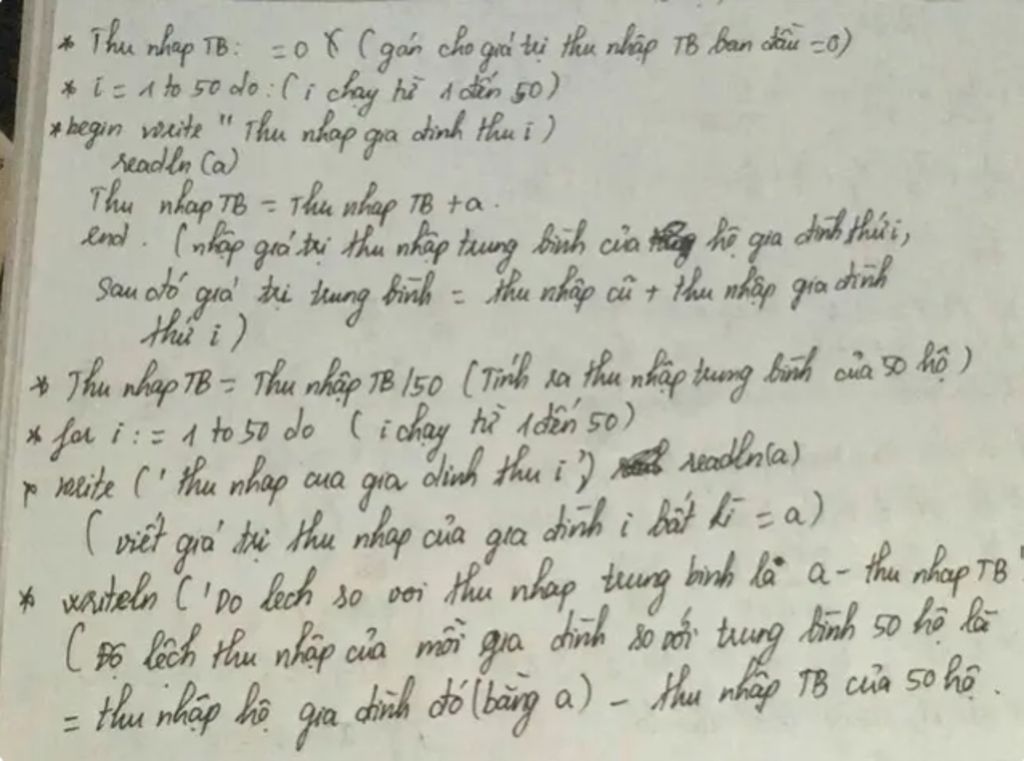 * Thu nhap TB: = 0 (gán cho giá trị thu nhập TB ban đầu = 0)
* i = 1 to 50 do: (i chạy từ 1 đến 50)
* begin write " Thu nhap gia dinh thu i)
readln (a)
Thu nhap TB = Thu nhap TB + a.
end. (nhập giá trị thu nhập trung bình của hộ gia đình thứ i,
sau đó giá trị trung bình = thu nhập cũ + thu nhập gia đình
thứ i)
* Thu nhap TB = Thu nhập TB/50 (Tính ra thu nhập trung bình của 50 hộ)
* for i := 1 to 50 do (i chạy từ 1 đến 50)
* write (' thu nhap cua gia dinh thu i') readln(a)
(viết giá trị thu nhap của gia đình i bất kì = a)
* writeln ('Do lech so voi thu nhap trung binh la a - thu nhap TB'
(Độ lệch thu nhập của mỗi gia đình so với trung bình 50 hộ là
= thu nhập hộ gia đình đó (bằng a) - thu nhập TB của 50 hộ.